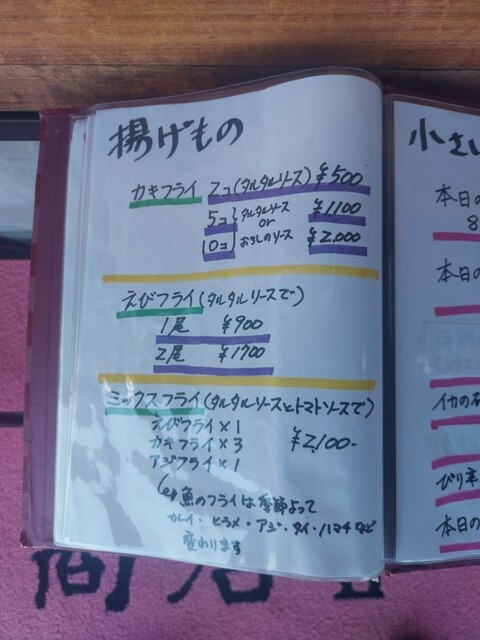 揚げもの
カキフライ 2コ(タルタルソース) ¥500
5コ タルタルソース ¥1100
or
10コ おろしのソース ¥2,000
えびフライ(タルタルソースで)
1尾 ¥900
2尾 ¥1700
ミックスフライ(タルタルソースとトマトソースで)
えびフライ×1
カキフライ×3 ¥2,100-
アジフライ×1
魚のフライは季節よって
カレイ・ヒラメ・アジ・タイ・ハマチなど
変わります
小さい
本日の
8
本日の
イカの
本日の